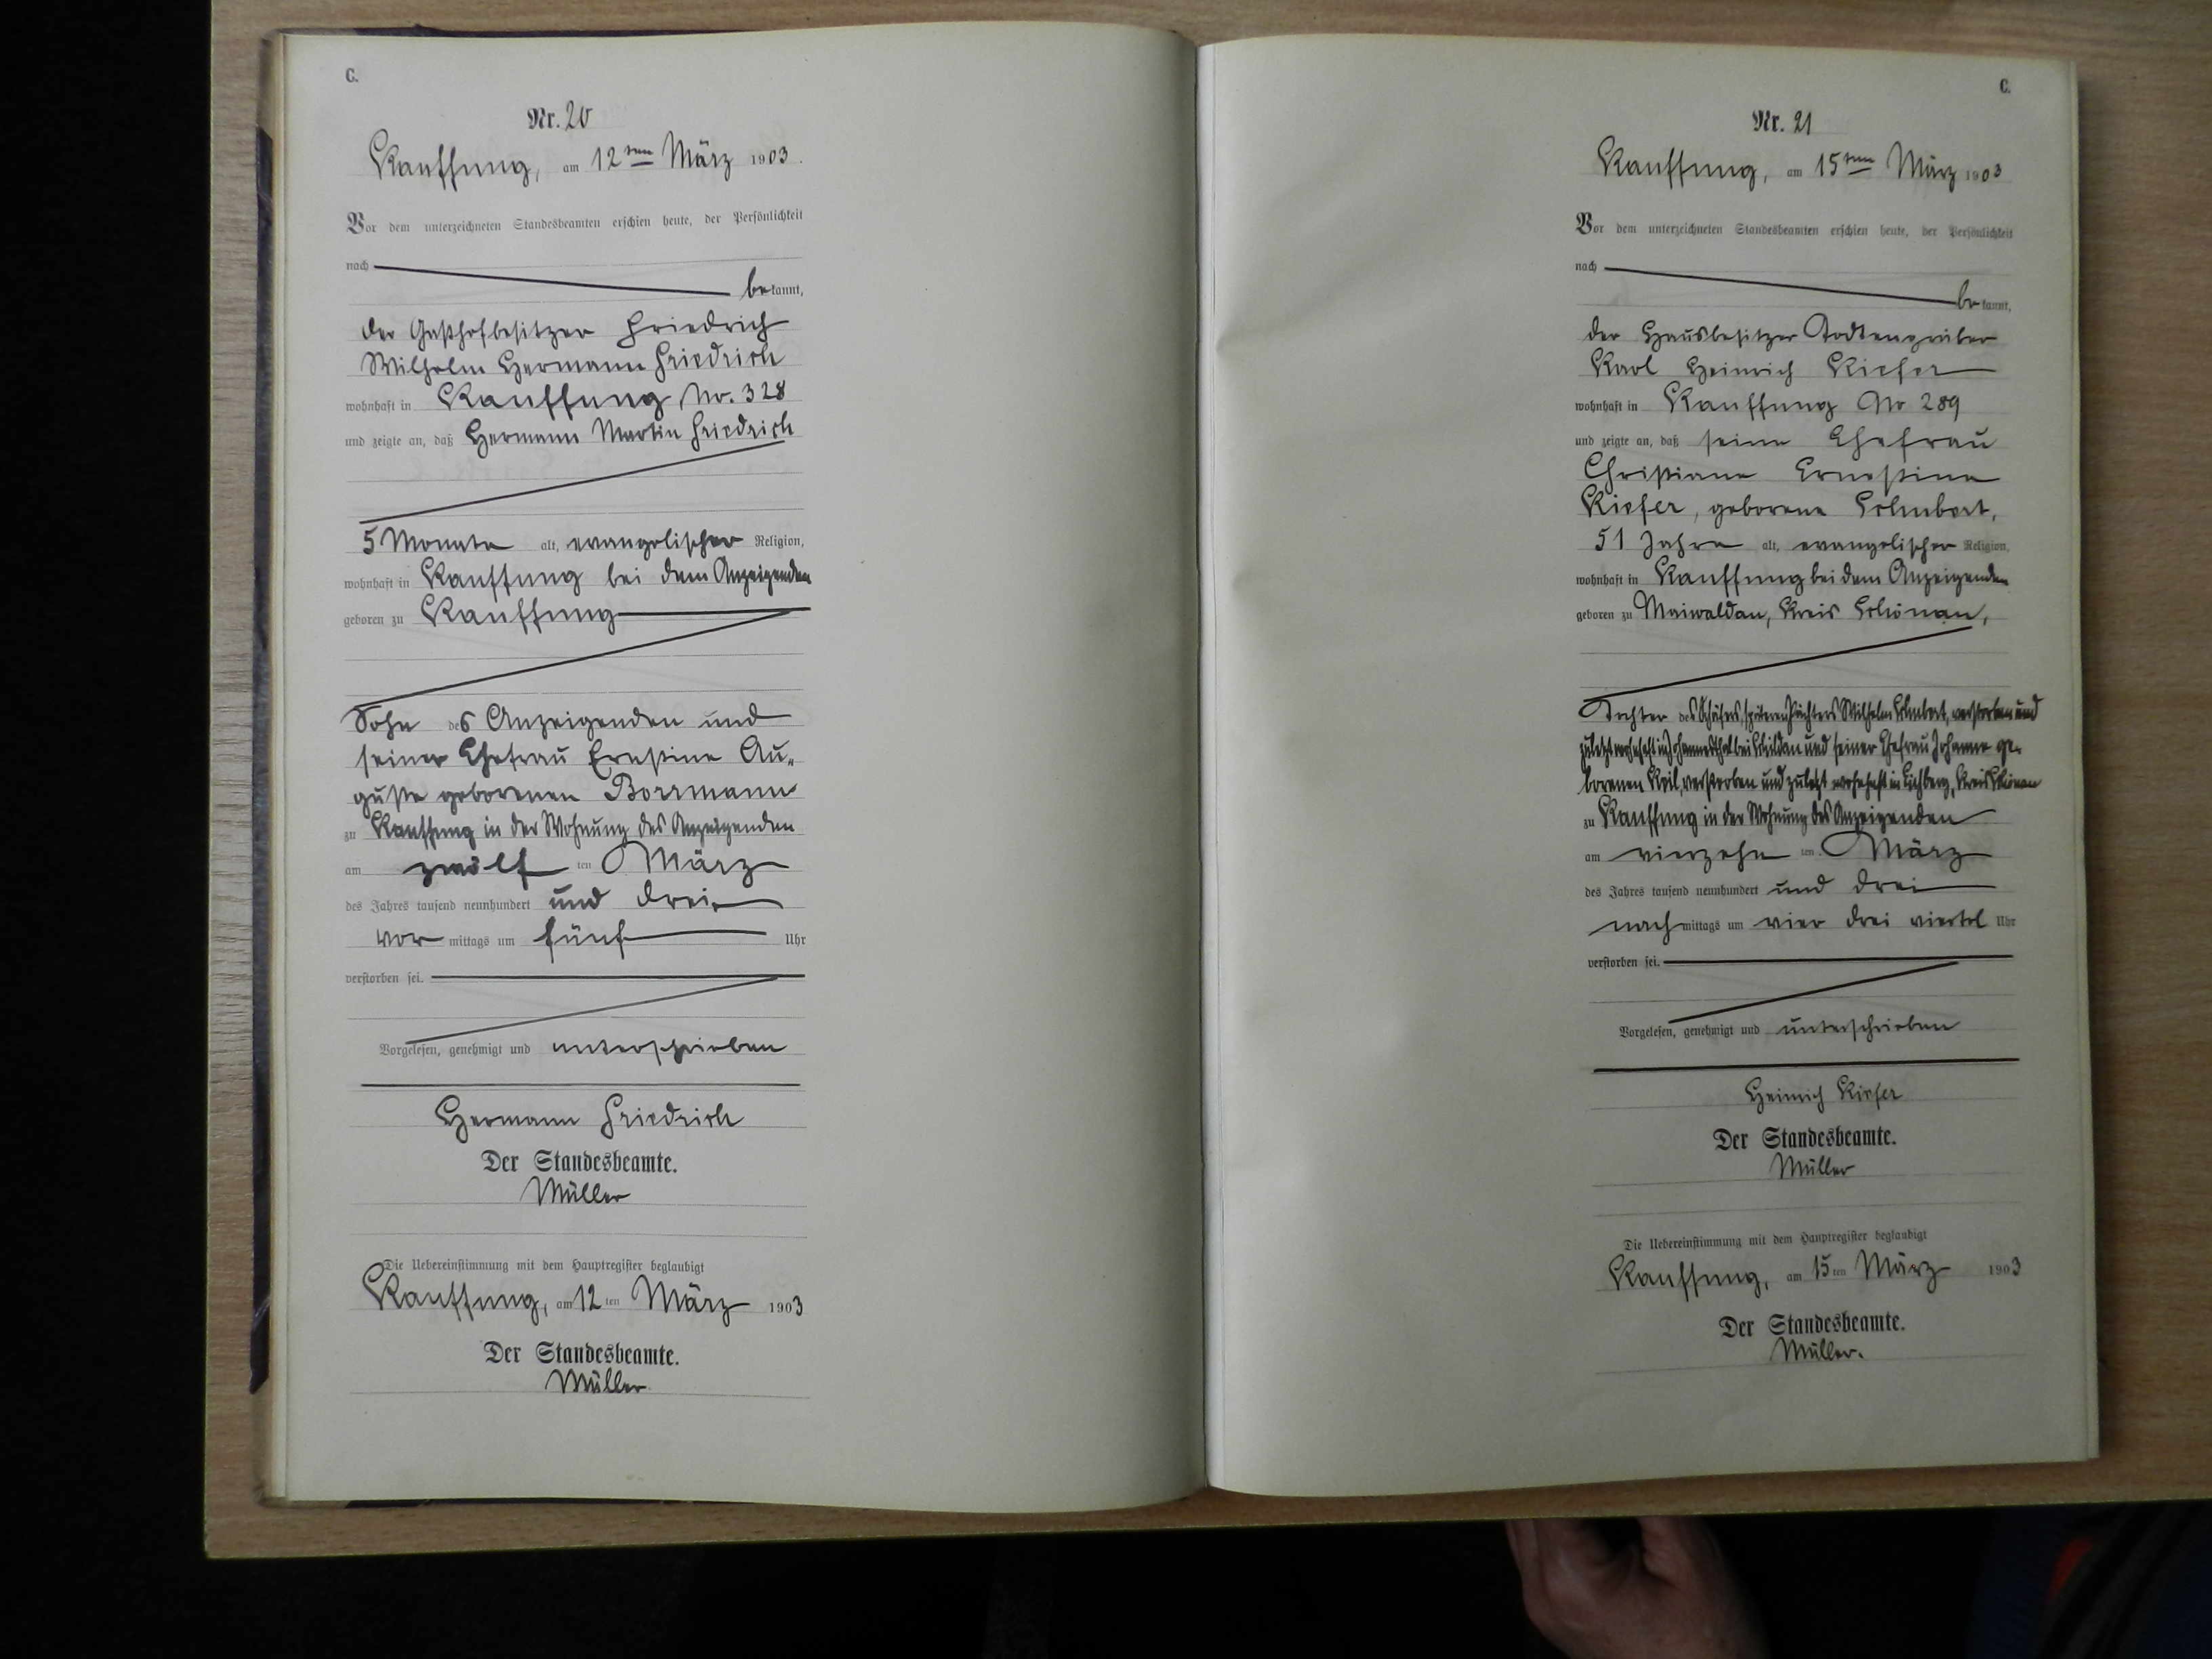 C.
Nr. 20
Kauffung, am 12ten März 1903.
Vor dem unterzeichneten Standesbeamten erschien heute, der Persönlichkeit
nach
bekannt,
der Gasthofbesitzer Friedrich
Wilhelm Hermann Friedrich
wohnhaft in Kauffung No. 328
und zeigte an, daß Hermann Martin Friedrich
5 Monate alt, evangelischer Religion,
wohnhaft in Kauffung bei dem Anzeigenden
geboren zu Kauffung
Sohn des Anzeigenden und
seiner Ehefrau Ernstine Au-
guste geborenen Borrmann
zu Kauffung in der Wohnung des Anzeigenden
am zwölf ten März
des Jahres tausend neunhundert und drei
vor mittags um fünf Uhr
verstorben sei.
Vorgelesen, genehmigt und unterschrieben
Hermann Friedrich
Der Standesbeamte.
Müller
Die Uebereinstimmung mit dem Hauptregister beglaubigt
Kauffung, am 12 ten März 1903
Der Standesbeamte.
Müller.
C.
Nr. 21
Kauffung, am 15ten März 1903
Vor dem unterzeichneten Standesbeamten erschien heute, der Persönlichkeit
nach
bekannt,
der Hausbesitzer Todtengräber
Karl Heinrich Kiefer
wohnhaft in Kauffung No 289
und zeigte an, daß seine Ehefrau
Christiane Ernestine
Kiefer, geborene
51 Jahre alt, evangelischer Religion,
wohnhaft in Kauffung bei dem Anzeigenden
geboren zu Maiwaldau, Kreis Schönau,
Tochter des Schäfers, späteren Pächters Wilhelm verstorben und
zuletzt wohnhaft in Johannesthal bei Schildau und seiner Ehefrau Johanne ge-
borenen Keil, verstorben und zuletzt wohnhaft in Eichberg, Kreis Schönau
zu Kauffung in der Wohnung des Anzeigenden
am vierzehn ten März
des Jahres tausend neunhundert und drei
nach mittags um vier drei viertel Uhr
verstorben sei.
Vorgelesen, genehmigt und unterschrieben
Heinrich Kiefer
Der Standesbeamte.
Müller
Die Uebereinstimmung mit dem Hauptregister beglaubigt
Kauffung, am 15 ten März 1903
Der Standesbeamte.
Müller.